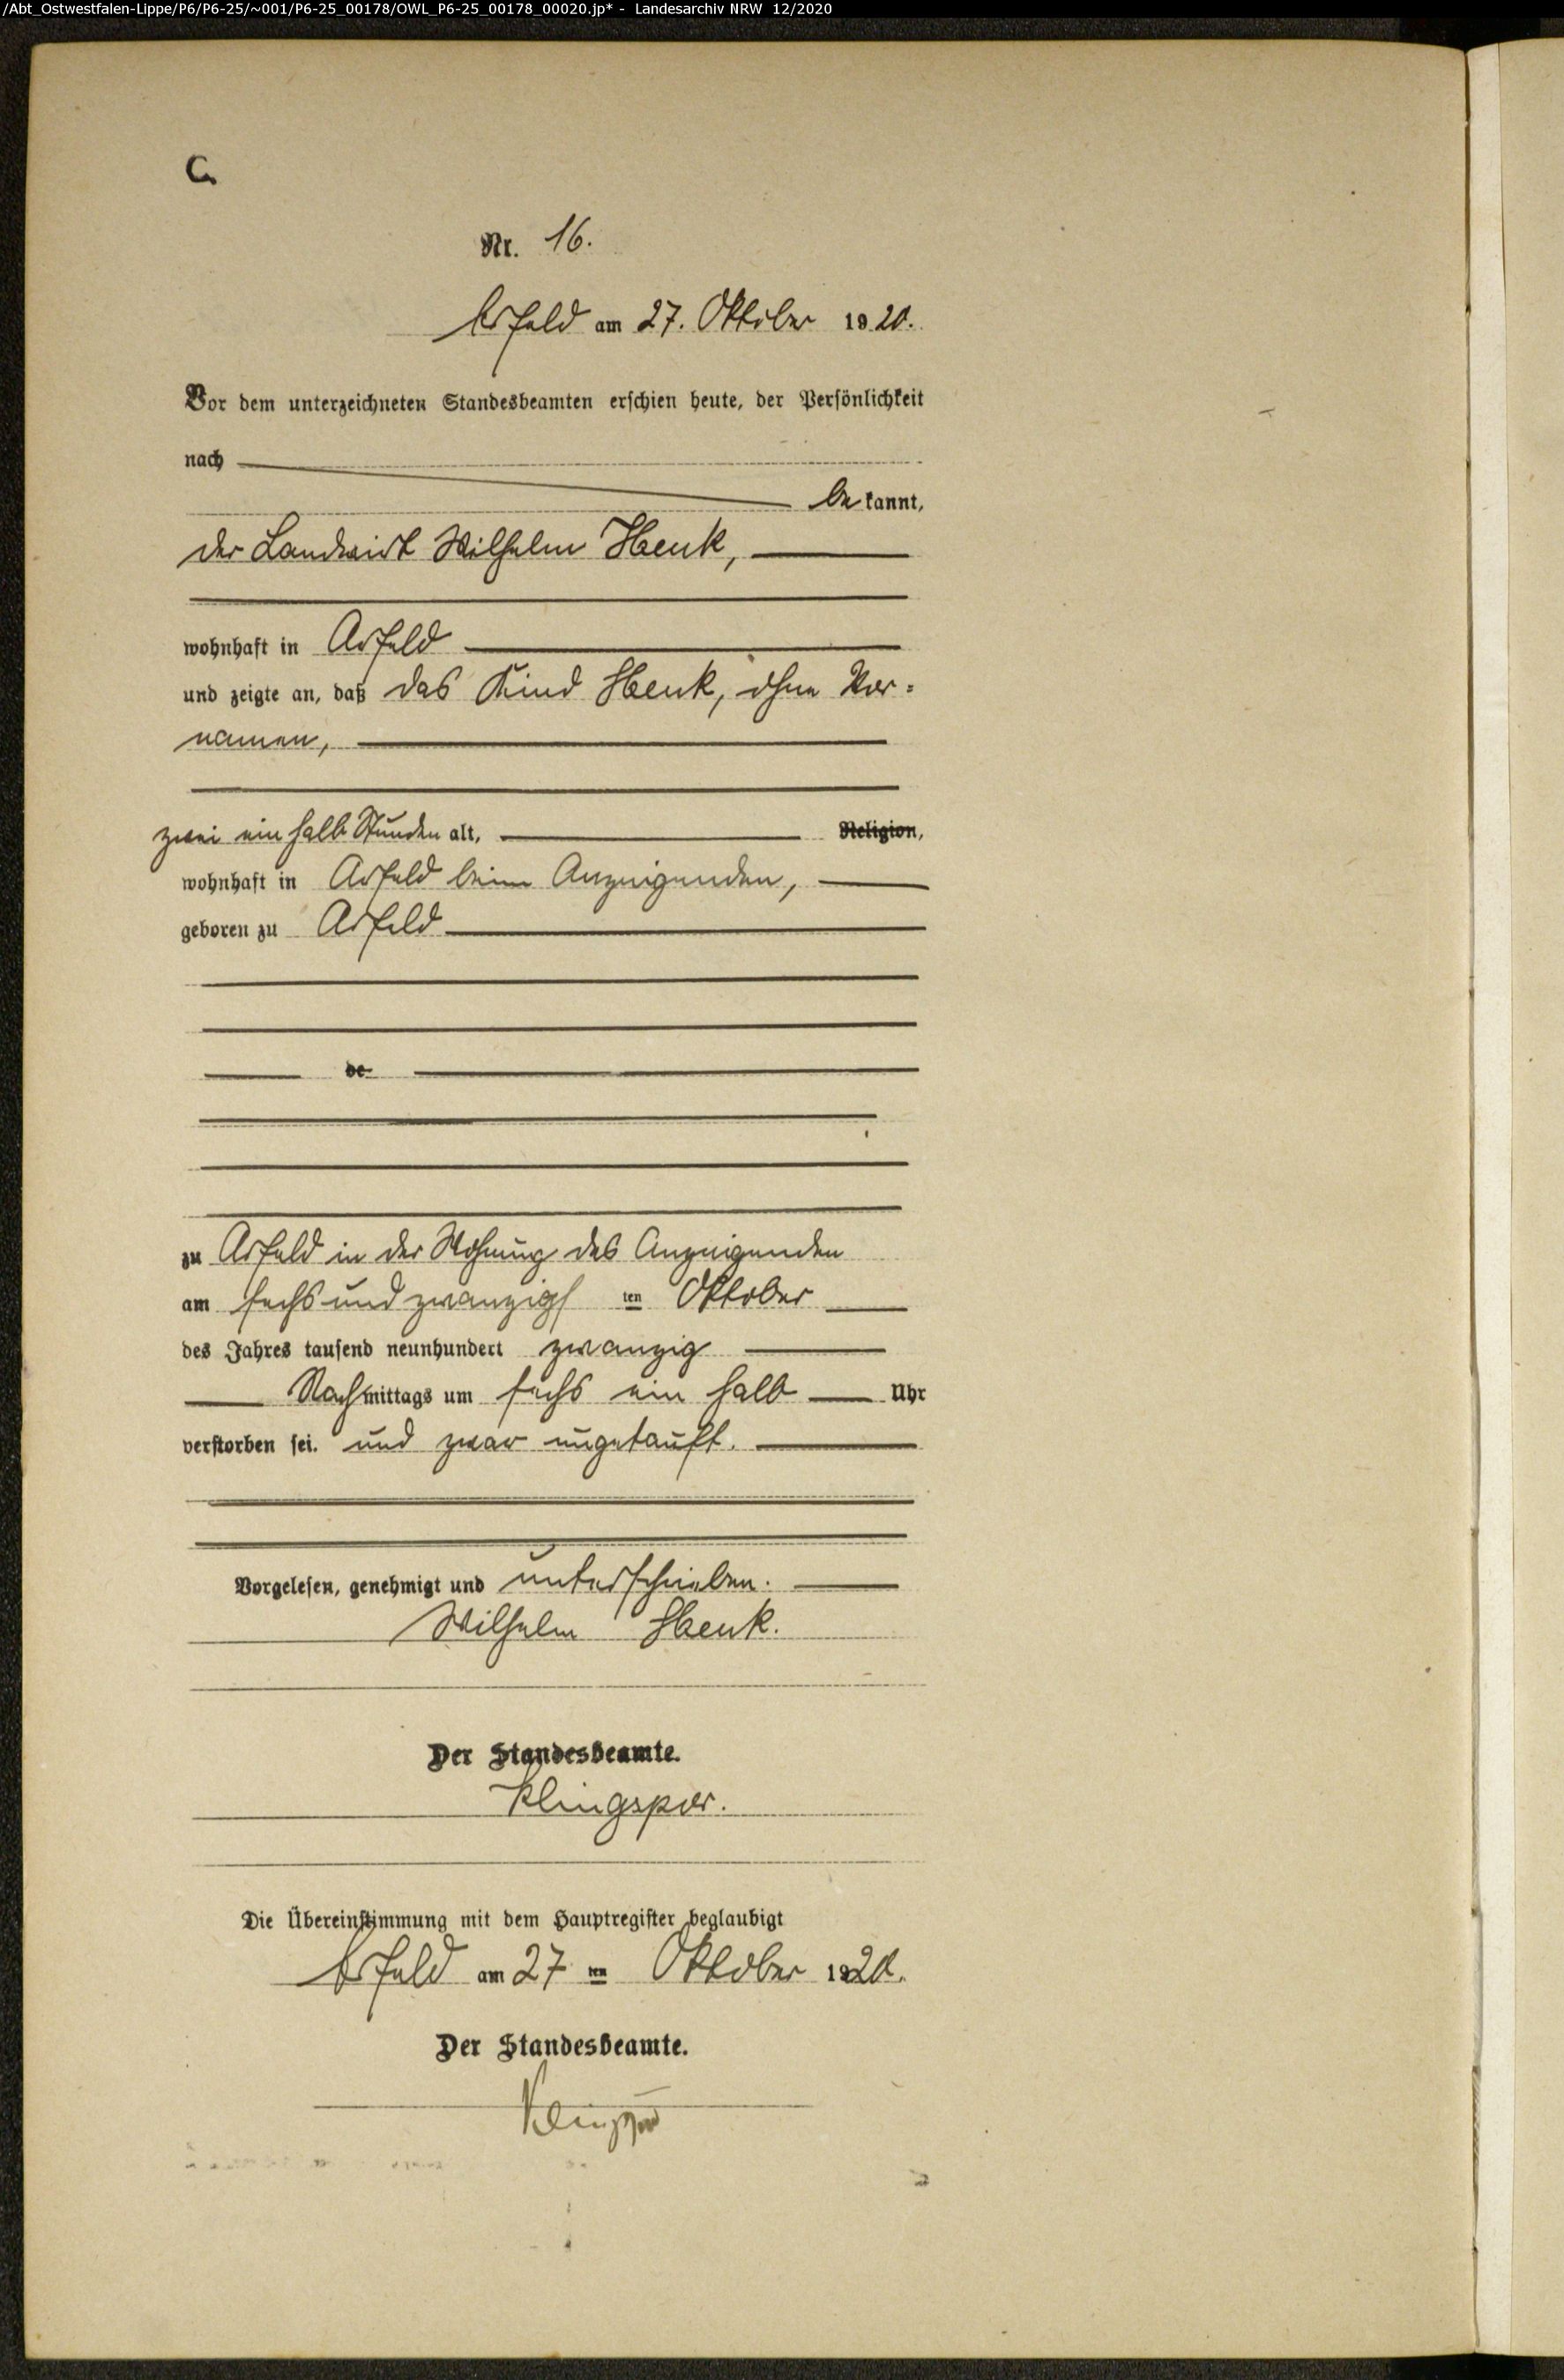 /Abt_Ostwestfalen-Lippe/P6/P6-25/~001/P6-25_00178/OWL_P6-25_00178_00020.jp* - Landesarchiv NRW 12/2020
C.
Nr. 16.
Arfeld am 27. Oktober 1920.
Vor dem unterzeichneten Standesbeamten erschien heute, der Persönlichkeit
nach
bekannt,
der Landwirt Wilhelm Henk,
wohnhaft in Arfeld
und zeigte an, daß das Kind Henk, ohne Vor=
namen,
zwei ein halb Stunden alt, Religion,
wohnhaft in Arfeld beim Anzeigenden,
geboren zu Arfeld
de
zu Arfeld in der Wohnung des Anzeigenden
am sechs und zwanzigsten Oktober
des Jahres tausend neunhundert zwanzig
Nachmittags um sechs ein halb Uhr
verstorben sei. und zwar ungetauft.
Vorgelesen, genehmigt und unterschrieben.
Wilhelm Henk.
Der Standesbeamte.
Klingspor.
Die Übereinstimmung mit dem Hauptregister beglaubigt
Arfeld am 27ten Oktober 1920.
Der Standesbeamte.